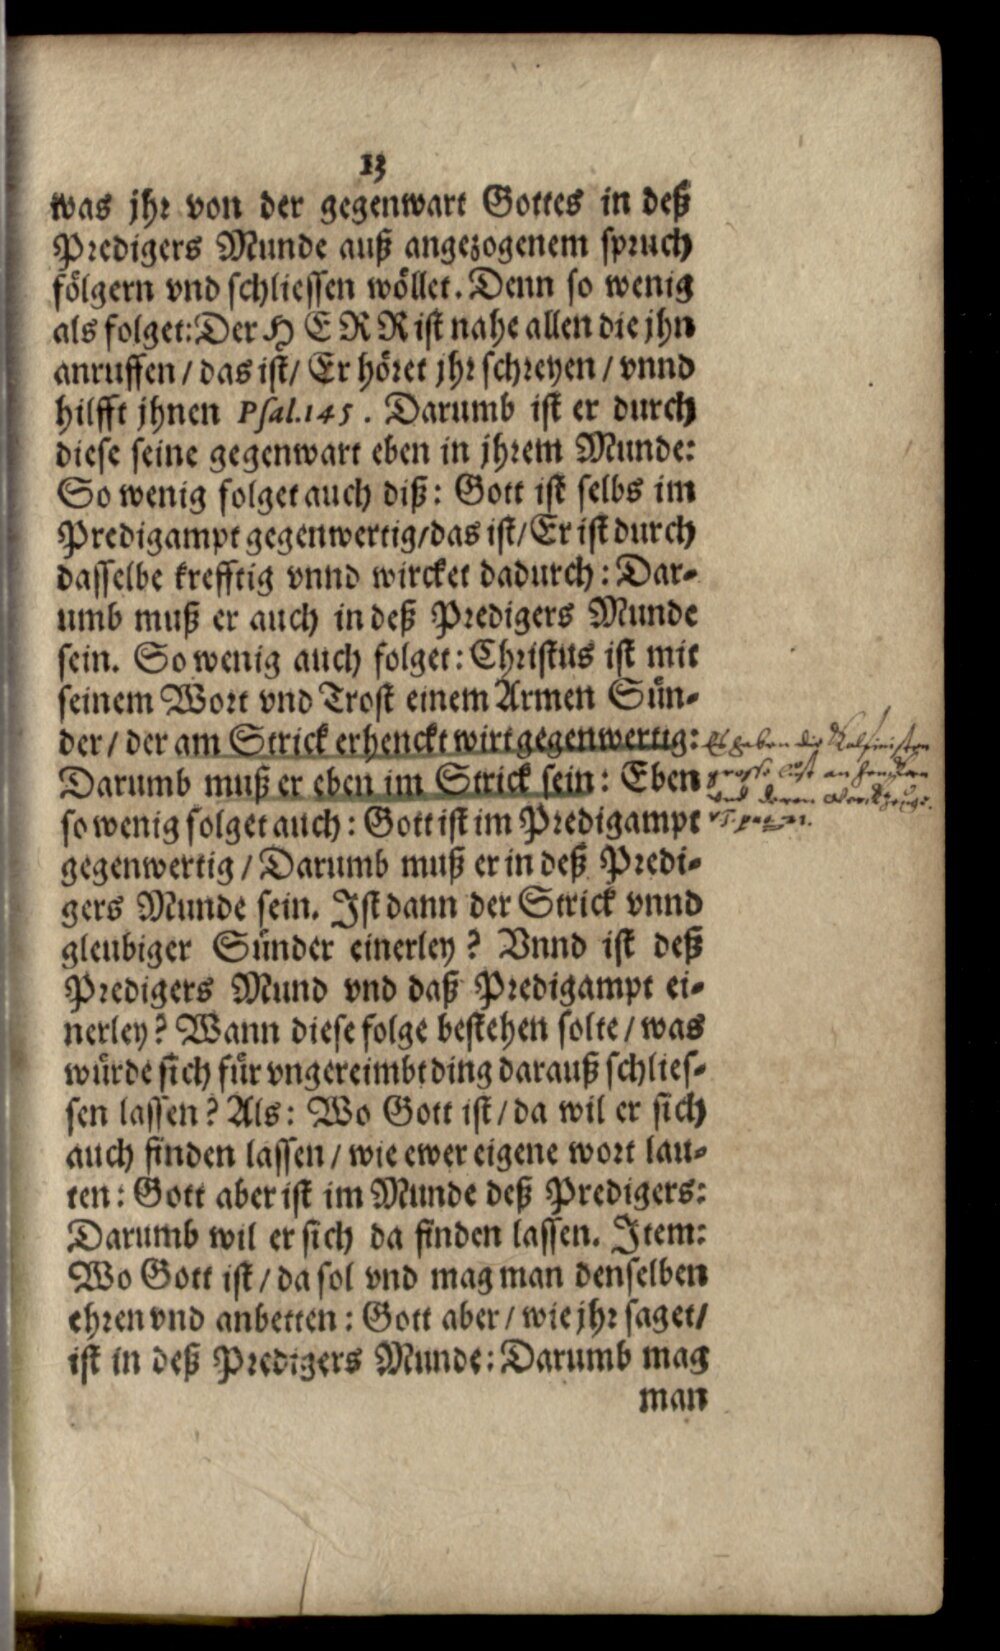 13
was jhr von der gegenwart Gottes in deß
Predigers Munde auß angezogenem spruch
fölgern vnd schliessen wöllet. Denn so wenig
als folget: Der HERR ist nahe allen die jhn
anruffen / das ist / Er höret jhr schreyen / vnnd
hilfft jhnen Psal. 145. Darumb ist er durch
diese seine gegenwart eben in jhrem Munde:
So wenig folget auch diß: Gott ist selbs im
Predigampt gegenwertig / das ist / Er ist durch
dasselbe krefftig vnnd wircket dadurch: Dar-
umb muß er auch in deß Predigers Munde
sein. So wenig auch folget: Christus ist mit
seinem Wort vnd Trost einem Armen Sün-
der / der am Strick erhenckt wirt gegenwertig:
Darumb muß er eben im Strick sein: Eben
so wenig folget auch: Gott ist im Predigampt
gegenwertig / Darumb muß er in deß Predi-
gers Munde sein. Ist dann der Strick vnnd
gleubiger Sünder einerley? Vnnd ist deß
Predigers Mund vnd daß Predigampt ei-
nerley? Wann diese folge bestehen solte / was
würde sich für vngereimbt ding darauß schlies-
sen lassen? Als: Wo Gott ist / da wil er sich
auch finden lassen / wie ewer eigene wort lau-
ten: Gott aber ist im Munde deß Predigers:
Darumb wil er sich da finden lassen. Item:
Wo Gott ist / da sol vnd mag man denselben
ehren vnd anbetten: Gott aber / wie jhr saget /
ist in deß Predigers Munde: Darumb mag
man
Es haben die Kalfinisten
grosse lust an Henckern
und deren Werckzeuge.